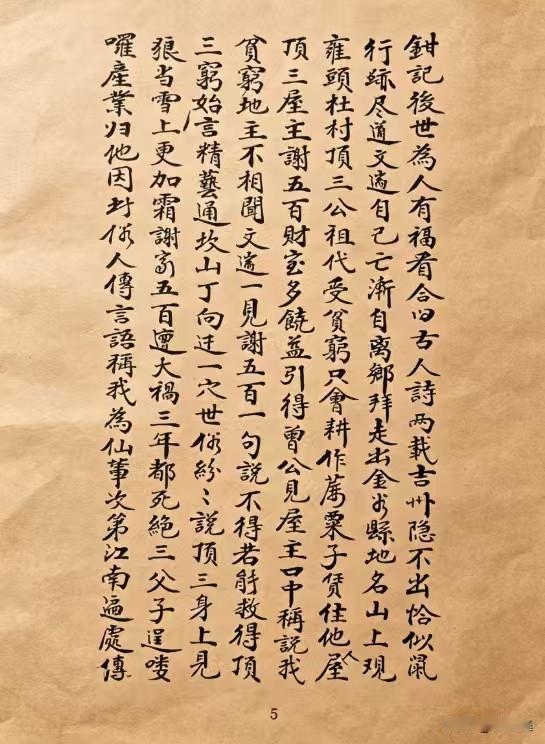 鉗記後世為人有福看合曰古人詩两載吉州隐不出恰似鼠
行跡尽道文遄自己亡漸自离鄉拜走出金谷縣地名山上現
雍頭杜村頂三公祖代受貧窮只會耕作蓆粟子賃住他屋
頂三屋主謝五百財宝多饒益引得曾公見屋主口中稱説我
貧窮地主不相聞文遄一見謝五百一句説不得若能救得頂
三窮始言精藝通坎山丁向迁一穴世俗紛〻説頂三身上見
狼当雪上更加霜謝家五百遭大禍三年都死絕三父子逞喽
囉產業归他因对俗人傳言語稱我為仙筆次第江南遍處傳
5